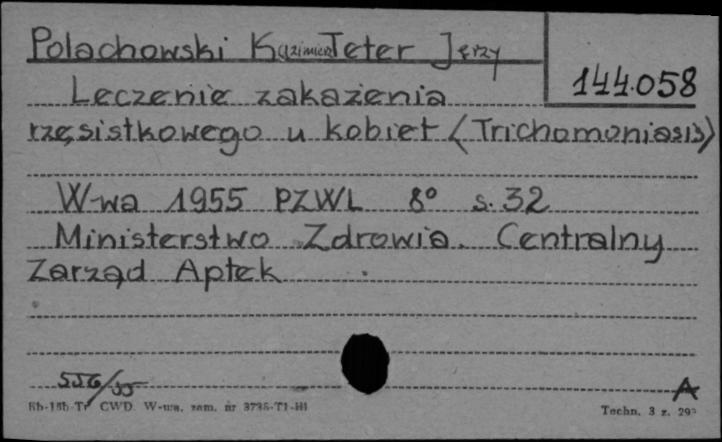 Polachowski Kazimierz Teter Jerzy
144.058
Leczenie zakażenia
rzęsistkowego u kobiet (Trichomoniasis)
W-wa 1955 PZWL 8° s. 32
Ministerstwo Zdrowia. Centralny
Zarząd Aptek
556/55
A
CWD. W-wa, zam. nr 3735-T1-
Techn. 3 z.